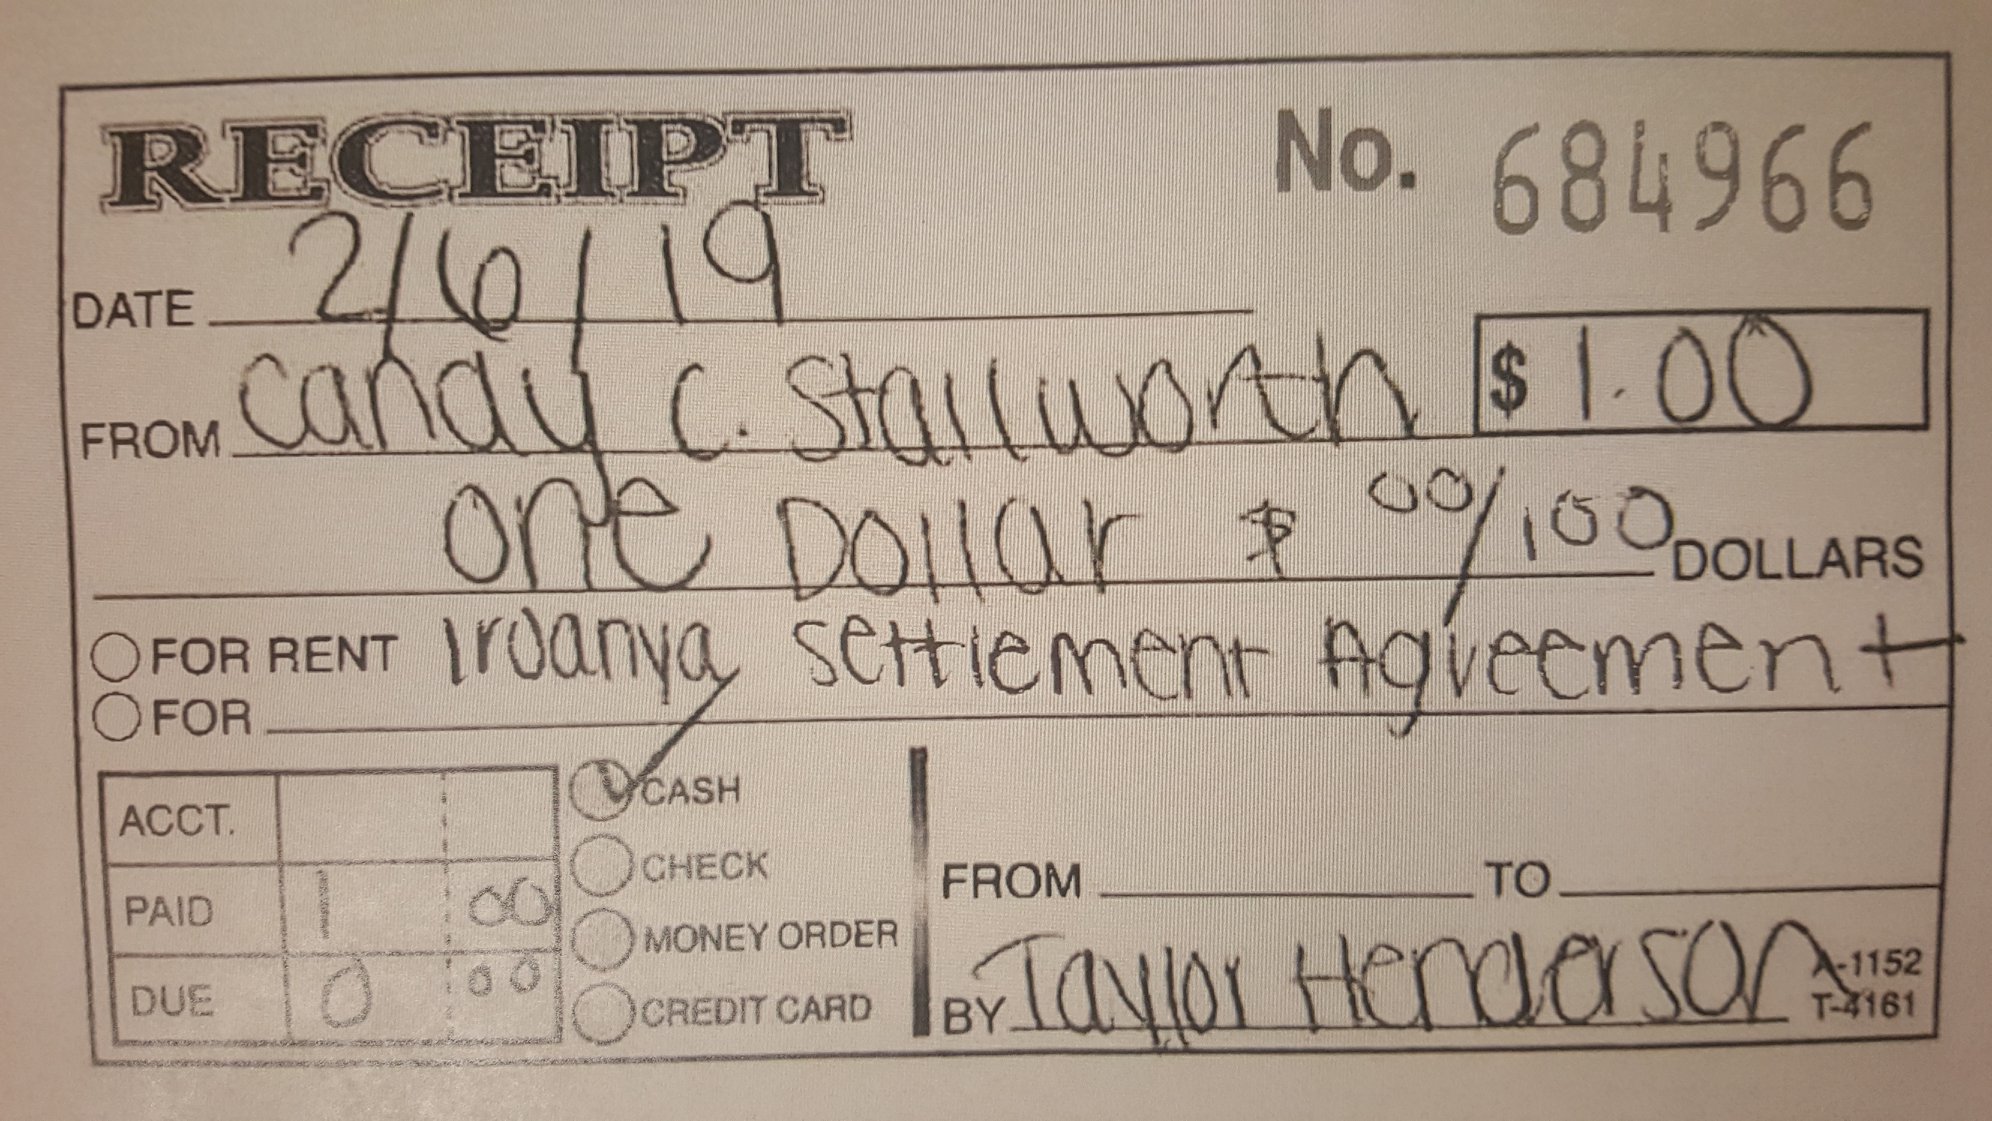 RECEIPT No. 684966
DATE 2/6/19
FROM Candy C. Stallworth $ 1.00
One Dollar & 00/100 DOLLARS
FOR RENT Iroanya Settlement Agreement
FOR
ACCT.
PAID 1 00
DUE 0 00
CASH
CHECK
MONEY ORDER
CREDIT CARD
FROM TO
BY Taylor Henderson
A-1152
T-4161